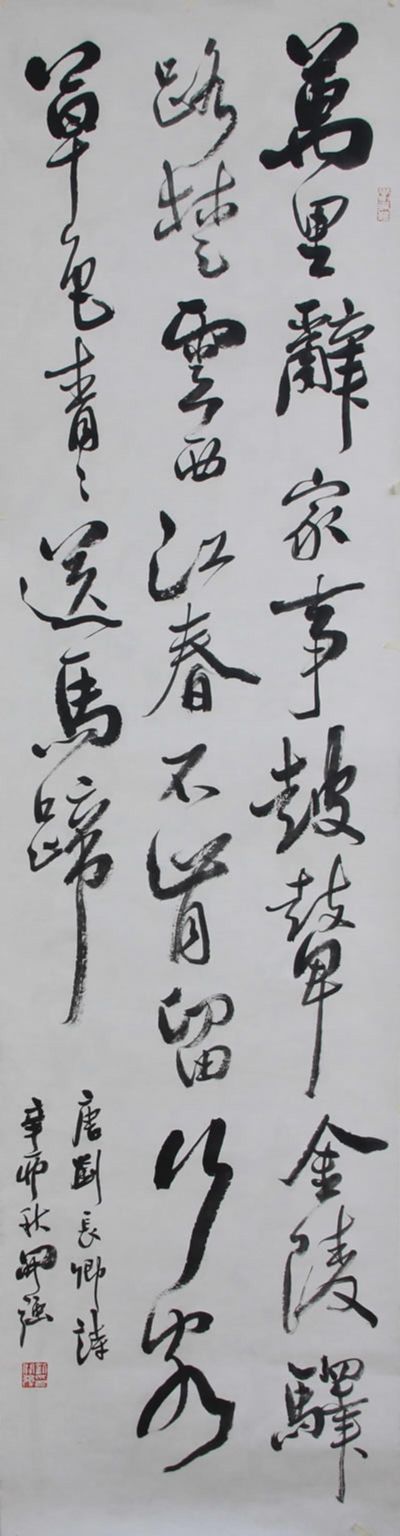 萬里辭家事鼓鼙金陵驛
路楚雲西江春不肯留行客
草色青〻送馬蹄
唐劉長卿詩
辛卯秋